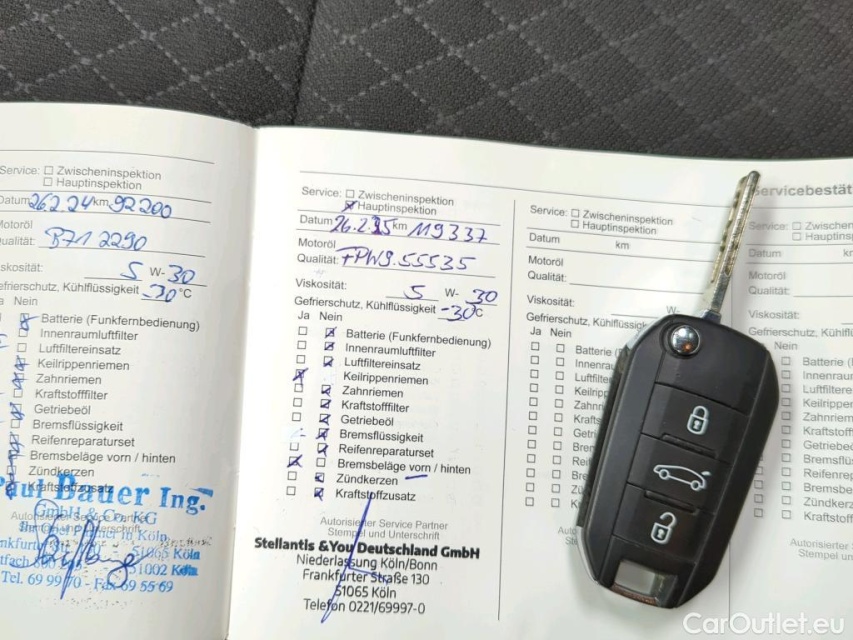 Service: Zwischeninspektion
Hauptinspektion
Datum 26.2.24 km 92200
Motoröl
Qualität: B71 2290
Viskosität: 5 W-30
Gefrierschutz, Kühlflüssigkeit -30°C
Ja Nein
Batterie (Funkfernbedienung)
Innenraumluftfilter
Luftfiltereinsatz
Keilrippenriemen
Zahnriemen
Kraftstofffilter
Getriebeöl
Bremsflüssigkeit
Reifenreparaturset
Bremsbeläge vorn / hinten
Zündkerzen
Kraftstoffzusatz
Paul Bauer Ing.
GmbH & Co. KG
51065 Köln
51002 Köln
Tel. 69 99 70 - Fax 69 55 69
Service: Zwischeninspektion
Hauptinspektion
Datum 26.2.25 km 119337
Motoröl
Qualität: FPW9.55535
Viskosität: 5 W- 30
Gefrierschutz, Kühlflüssigkeit -30°C
Ja Nein
Batterie (Funkfernbedienung)
Innenraumluftfilter
Luftfiltereinsatz
Keilrippenriemen
Zahnriemen
Kraftstofffilter
Getriebeöl
Bremsflüssigkeit
Reifenreparaturset
Bremsbeläge vorn / hinten
Zündkerzen
Kraftstoffzusatz
Autorisierter Service Partner
Stempel und Unterschrift
Stellantis &You Deutschland GmbH
Niederlassung Köln/Bonn
Frankfurter Straße 130
51065 Köln
Telefon 0221/69997-0
Service: Zwischeninspektion
Hauptinspektion
Datum km
Motoröl
Qualität:
Viskosität: W-
Gefrierschutz, Kühlflüssig
Ja Nein
Batterie (
Innenra
Luftfilt
Keilrip
Zahn
Kraft
Getri
Bre
Rei
Bre
Zü
Kr
Autoris
Stem
Servicebestät
Service: Zwischeninsp
Hauptinsp
Datum km
Motoröl
Qualität:
Viskosität:
Gefrierschutz, Kühlflüss
Nein
Batterie (
Innenraum
Luftfiltere
Keilrippe
Zahnriem
Kraftstoff
Getriebeö
Bremsflü
Reifenrep
Bremsbe
Zündkerz
Kraftstof
Autorisierter
Stempel un
CarOutlet.eu